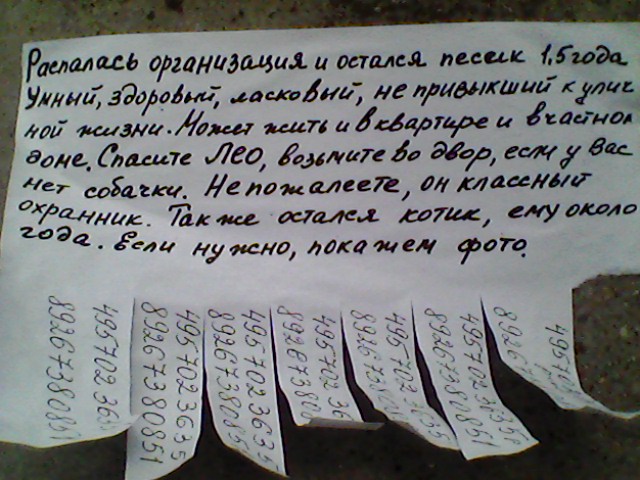 Распалась организация и остался песик 1.5 года
Умный, здоровый, ласковый, не привыкший к улич
ной жизни. Может жить и в квартире и в частном
доме. Спасите ЛЕО, возьмите во двор, если у Вас
нет собачки. Не пожалеете, он классный
охранник. Так же остался котик, ему около
года. Если нужно, покажем фото.
89267380851
495 702 363
89267380851
495 702 3635
8926738085
495 702 3635
892673808
495 702 36
89267380
495 702
89267380851
495 702 36
89267
495 70